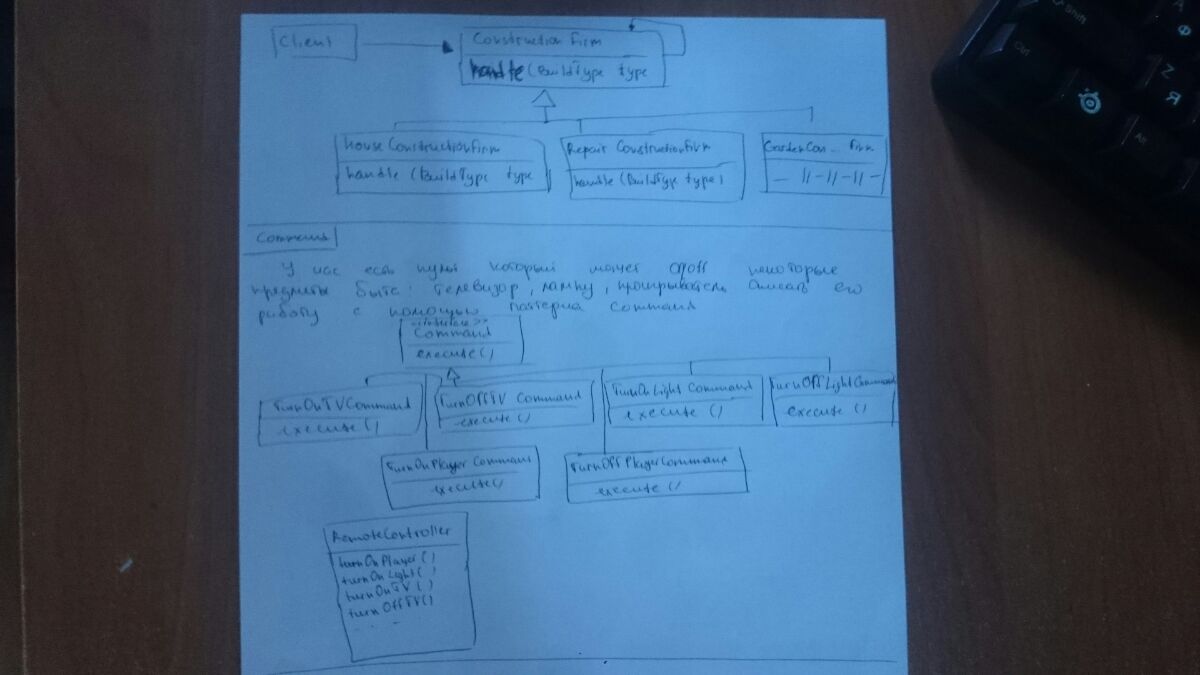 Client
Construction Firm
handle (BuildType type
House ConstructionFirm
handle (BuildType type
Repair ConstructionFirm
handle (BuildType type)
GardenCon... Firm
— 11 – 11 – 11 –
Command
У нас есть пульт который может On/off некоторые
предметы быта: телевизор, лампу, проигрыватель Описать его
работу с помощью паттерна command
<<interface>>
Command
execute()
TurnOnTVCommand
execute()
TurnOffTV Command
execute()
TurnOnLight Command
execute()
TurnOffLightCommand
execute()
TurnOnPlayer Command
execute()
TurnOffPlayerCommand
execute()
RemoteController
turnOnPlayer()
turnOnLight()
turnOnTV()
turnOffTV()
. . . .
Shift
Ctrl
Alt
Z
Я
Ф